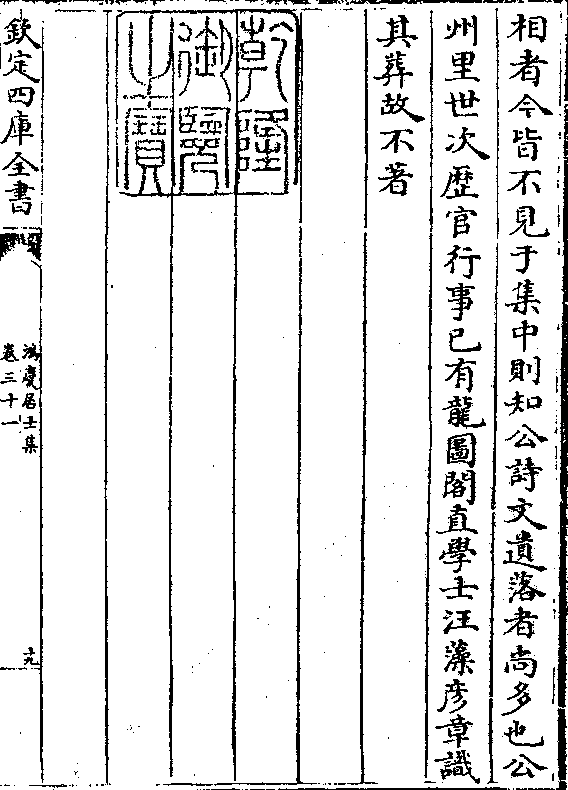 相者今皆不見于集中則知公詩文遺落者尚多也公
州里世次歴官行事已有龍圖閣直學士汪藻彦章識
其葬故不著
乾隆
御覽
之寶
欽定四庫全書
鴻慶居士集
卷三十一
十九